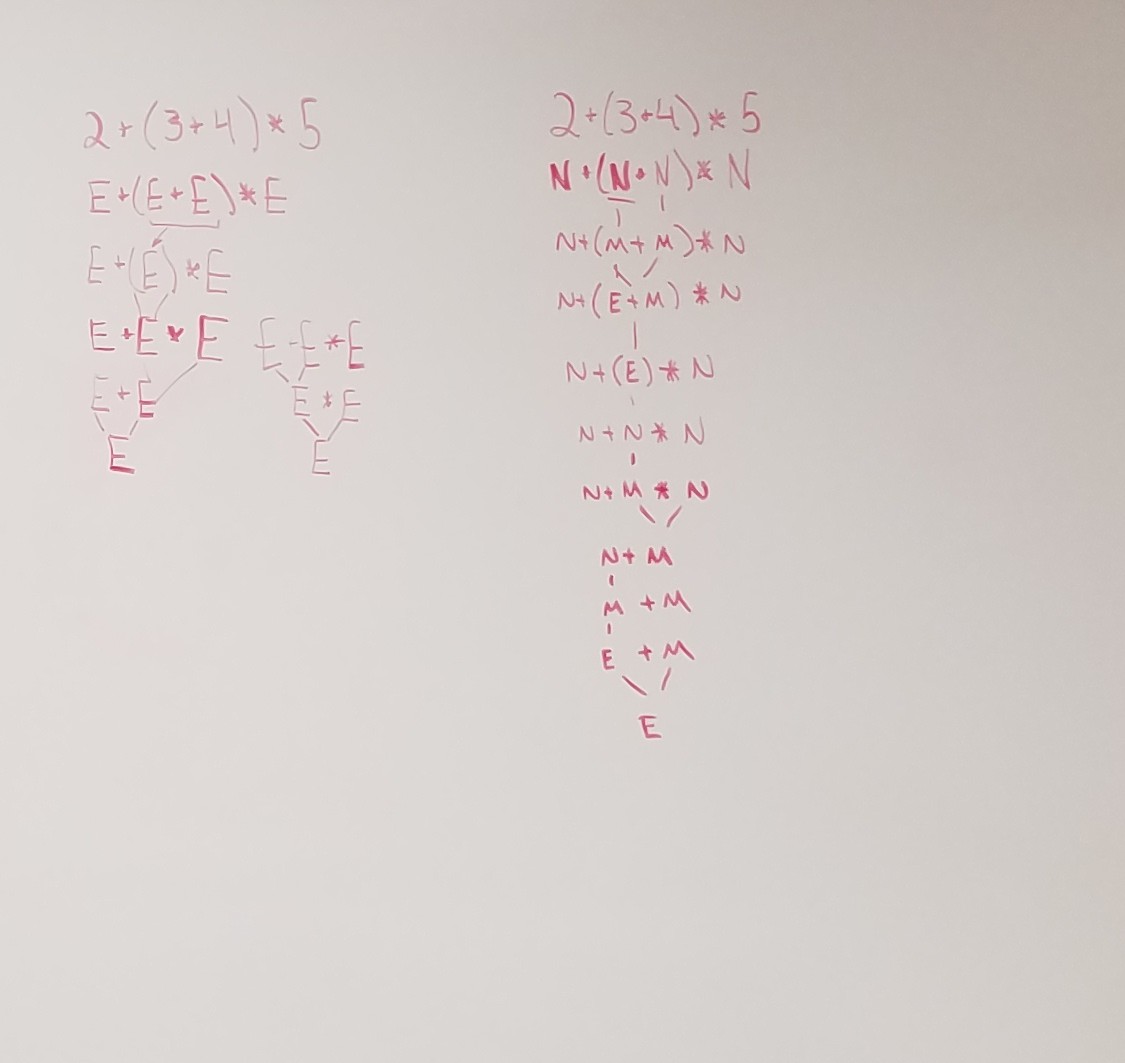 2+(3+4)*5
E+(E+E)*E
E+(E)*E
E+E*E
E+E
E
E-E*E
E*E
E
2+(3+4)*5
N+(N+N)*N
N+(M+M)*N
N+(E+M)*N
N+(E)*N
N+N*N
N+M*N
N+M
M+M
E+M
E